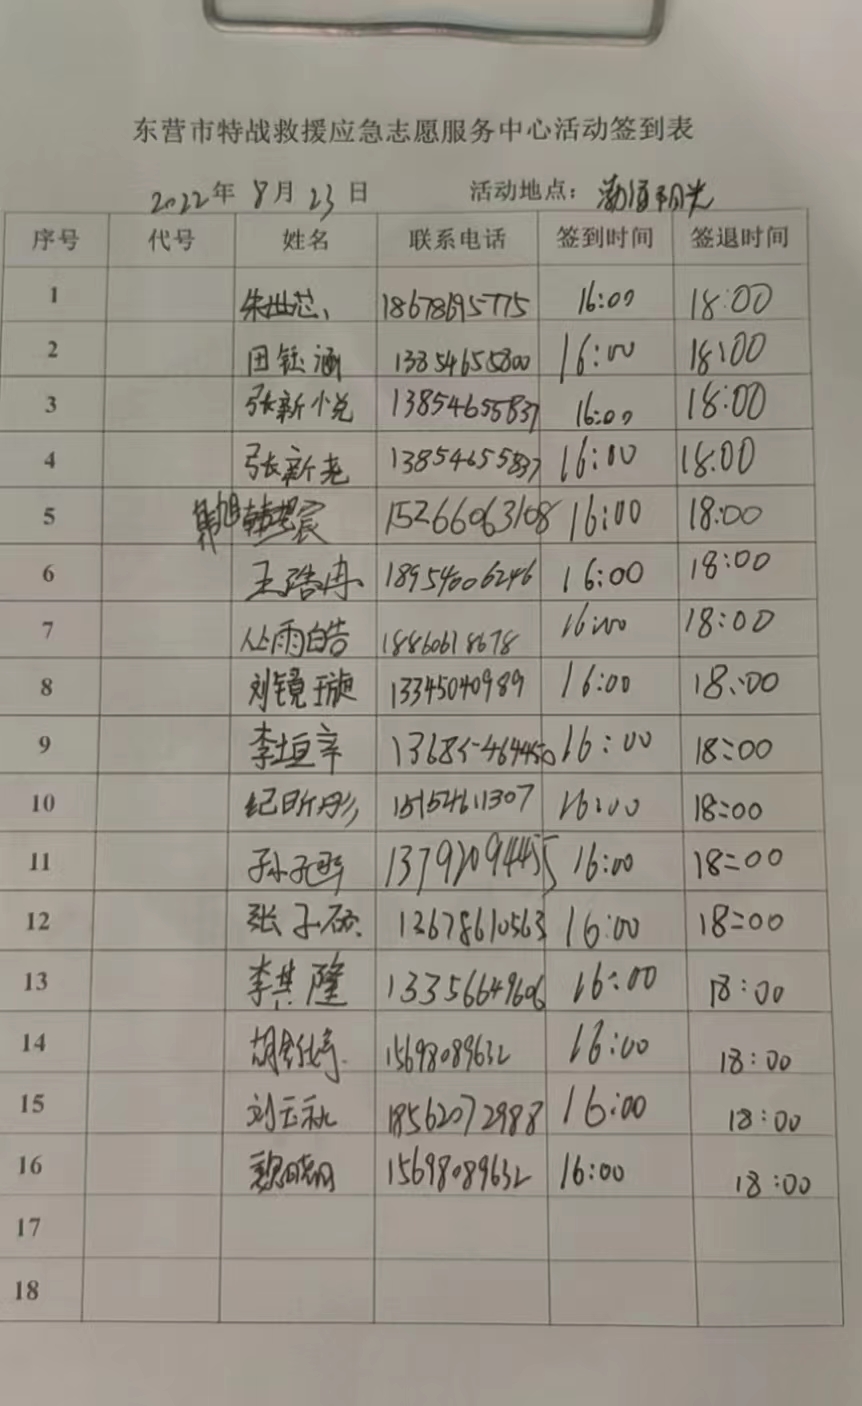 东营市特战救援应急志愿服务中心活动签到表
2022年 8月 23日 活动地点: 渤海阳光
序号 代号 姓名 联系电话 签到时间 签退时间
1 朱世芯 18678695775 16:00 18:00
2 田钰涵 13854655800 16:00 18:00
3 张新悦 13854655837 16:00 18:00
4 张新尧 13854655837 16:00 18:00
5 宸 15266063108 16:00 18:00
6 王浩冉 18954006246 16:00 18:00
7 丛雨皓 18860618678 16:00 18:00
8 刘镜璇 13345040989 16:00 18:00
9 李垣辛 13685464450 16:00 18:00
10 纪昕彤 15154611307 16:00 18:00
11 孙 13792094455 16:00 18:00
12 张子硕 13678610563 16:00 18:00
13 李其隆 13356649606 16:00 18:00
14 胡 15698089632 16:00 18:00
15 刘云秋 18562072988 16:00 18:00
16 15698089632 16:00 18:00
17
18